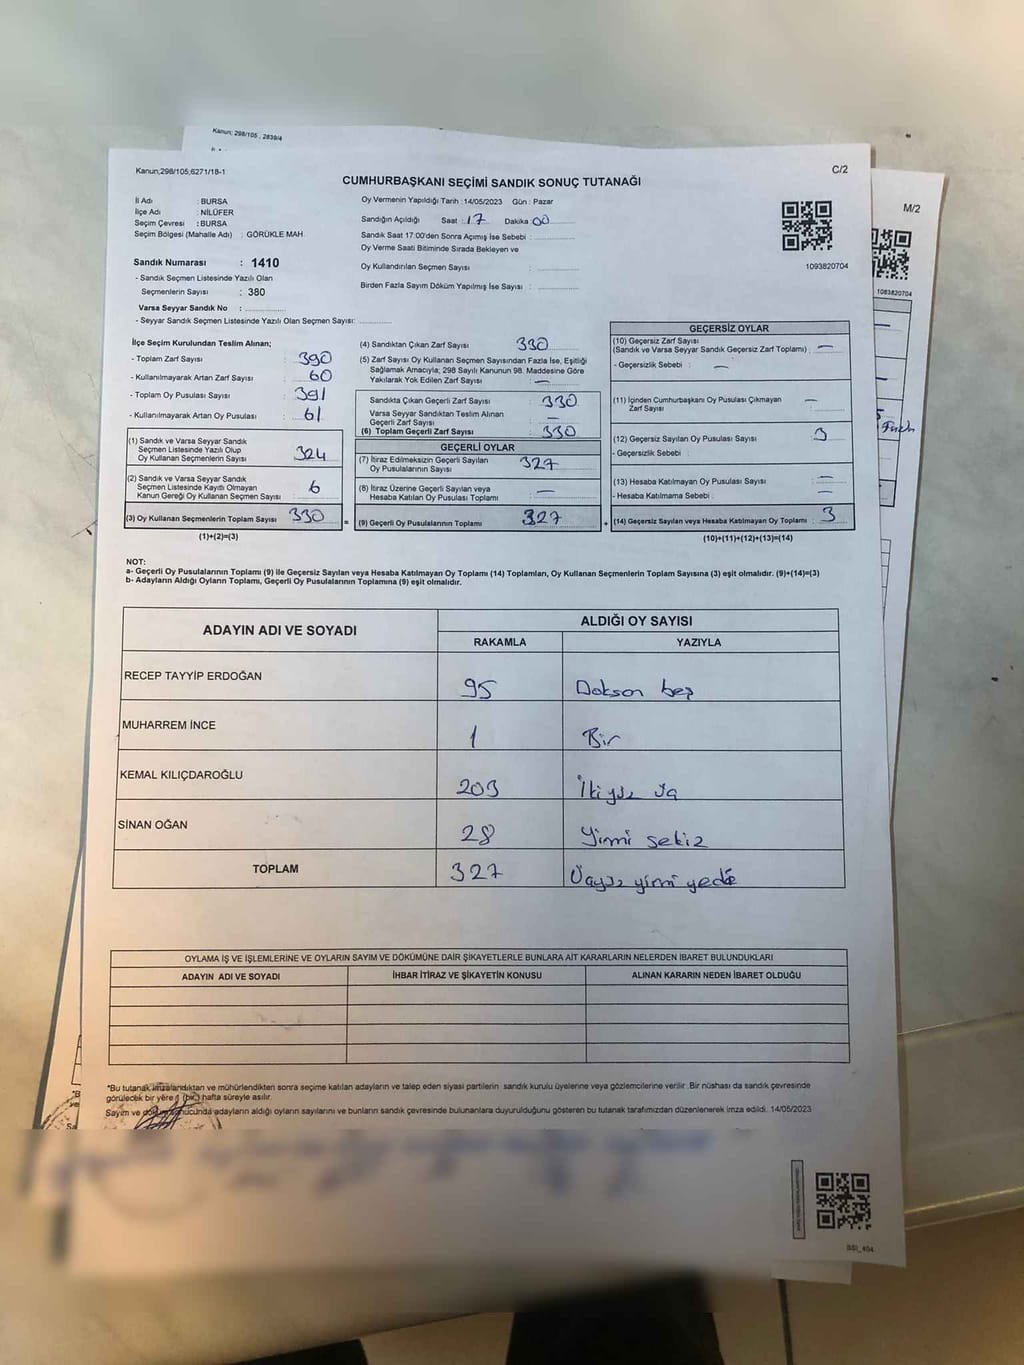 Kanun; 298/105, 2839/4
Kanun;298/105;6271/18-1
C/2
M/2
CUMHURBAŞKANI SEÇİMİ SANDIK SONUÇ TUTANAĞI
İl Adı : BURSA
İlçe Adı : NİLÜFER
Seçim Çevresi : BURSA
Seçim Bölgesi (Mahalle Adı) : GÖRÜKLE MAH.
Sandık Numarası : 1410
- Sandık Seçmen Listesinde Yazılı Olan
Seçmenlerin Sayısı : 380
Varsa Seyyar Sandık No :
- Seyyar Sandık Seçmen Listesinde Yazılı Olan Seçmen Sayısı:
Oy Vermenin Yapıldığı Tarih : 14/05/2023 Gün : Pazar
Sandığın Açıldığı Saat : 17 Dakika 00
Sandık Saat 17:00'den Sonra Açımış İse Sebebi :
Oy Verme Saati Bitiminde Sırada Bekleyen ve
Oy Kullandırılan Seçmen Sayısı :
Birden Fazla Sayım Döküm Yapılmış İse Sayısı :
1093820704
1083820704
İlçe Seçim Kurulundan Teslim Alınan;
- Toplam Zarf Sayısı : 390
- Kullanılmayarak Artan Zarf Sayısı : 60
- Toplam Oy Pusulası Sayısı : 391
- Kullanılmayarak Artan Oy Pusulası : 61
(1) Sandık ve Varsa Seyyar Sandık
Seçmen Listesinde Yazılı Olup
Oy Kullanan Seçmenlerin Sayısı : 324
(2) Sandık ve Varsa Seyyar Sandık
Seçmen Listesinde Kayıtlı Olmayan
Kanun Gereği Oy Kullanan Seçmen Sayısı : 6
(3) Oy Kullanan Seçmenlerin Toplam Sayısı : 330
(1)+(2)=(3)
(4) Sandıktan Çıkan Zarf Sayısı : 330
(5) Zarf Sayısı Oy Kullanan Seçmen Sayısından Fazla İse, Eşitliği
Sağlamak Amacıyla; 298 Sayılı Kanunun 98. Maddesine Göre
Yakılarak Yok Edilen Zarf Sayısı : —
Sandıkta Çıkan Geçerli Zarf Sayısı : 330
Varsa Seyyar Sandıktan Teslim Alınan
Geçerli Zarf Sayısı : —
(6) Toplam Geçerli Zarf Sayısı : 330
GEÇERLİ OYLAR
(7) İtiraz Edilmeksizin Geçerli Sayılan
Oy Pusulalarının Sayısı : 327
(8) İtiraz Üzerine Geçerli Sayılan veya
Hesaba Katılan Oy Pusulası Toplamı : —
(9) Geçerli Oy Pusulalarının Toplamı : 327
GEÇERSİZ OYLAR
(10) Geçersiz Zarf Sayısı
(Sandık ve Varsa Seyyar Sandık Geçersiz Zarf Toplamı) : —
- Geçersizlik Sebebi : —
(11) İçinden Cumhurbaşkanı Oy Pusulası Çıkmayan
Zarf Sayısı : —
(12) Geçersiz Sayılan Oy Pusulası Sayısı : 3
- Geçersizlik Sebebi :
(13) Hesaba Katılmayan Oy Pusulası Sayısı : —
- Hesaba Katılmama Sebebi : —
(14) Geçersiz Sayılan veya Hesaba Katılmayan Oy Toplamı : 3
(10)+(11)+(12)+(13)=(14)
NOT:
a- Geçerli Oy Pusulasının Toplamı (9) ile Geçersiz Sayılan veya Hesaba Katılmayan Oy Toplamı (14) Toplamları, Oy Kullanan Seçmenlerin Toplam Sayısına (3) eşit olmalıdır. (9)+(14)=(3)
b- Adayların Aldığı Oyların Toplamı, Geçerli Oy Pusulalarının Toplamına (9) eşit olmalıdır.
ADAYIN ADI VE SOYADI
ALDIĞI OY SAYISI
RAKAMLA YAZIYLA
RECEP TAYYİP ERDOĞAN 95 Doksan beş
MUHARREM İNCE 1 Bir
KEMAL KILIÇDAROĞLU 203 İkiyüz üç
SİNAN OĞAN 28 Yirmi sekiz
TOPLAM 327 Üçyüz yirmi yedi
OYLAMA İŞ VE İŞLEMLERİNE VE OYLARIN SAYIM VE DÖKÜMÜNE DAİR ŞİKAYETLERLE BUNLARA AİT KARARLARIN NELERDEN İBARET BULUNDUKLARI
ADAYIN ADI VE SOYADI İHBAR İTİRAZ VE ŞİKAYETİN KONUSU ALINAN KARARIN NEDEN İBARET OLDUĞU
*Bu tutanak imzalandıktan ve mühürlendikten sonra seçime katılan adayların ve talep eden siyasi partilerin sandık kurulu üyelerine veya gözlemcilerine verilir. Bir nüshası da sandık çevresinde
görülecek bir yere 1 (bir) hafta süreyle asılır.
Sayım ve döküm sonucunda adayların aldığı oyların sayılarını ve bunların sandık çevresinde bulunanlara duyurulduğunu gösteren bu tutanak tarafımızdan düzenlenerek imza edildi. 14/05/2023